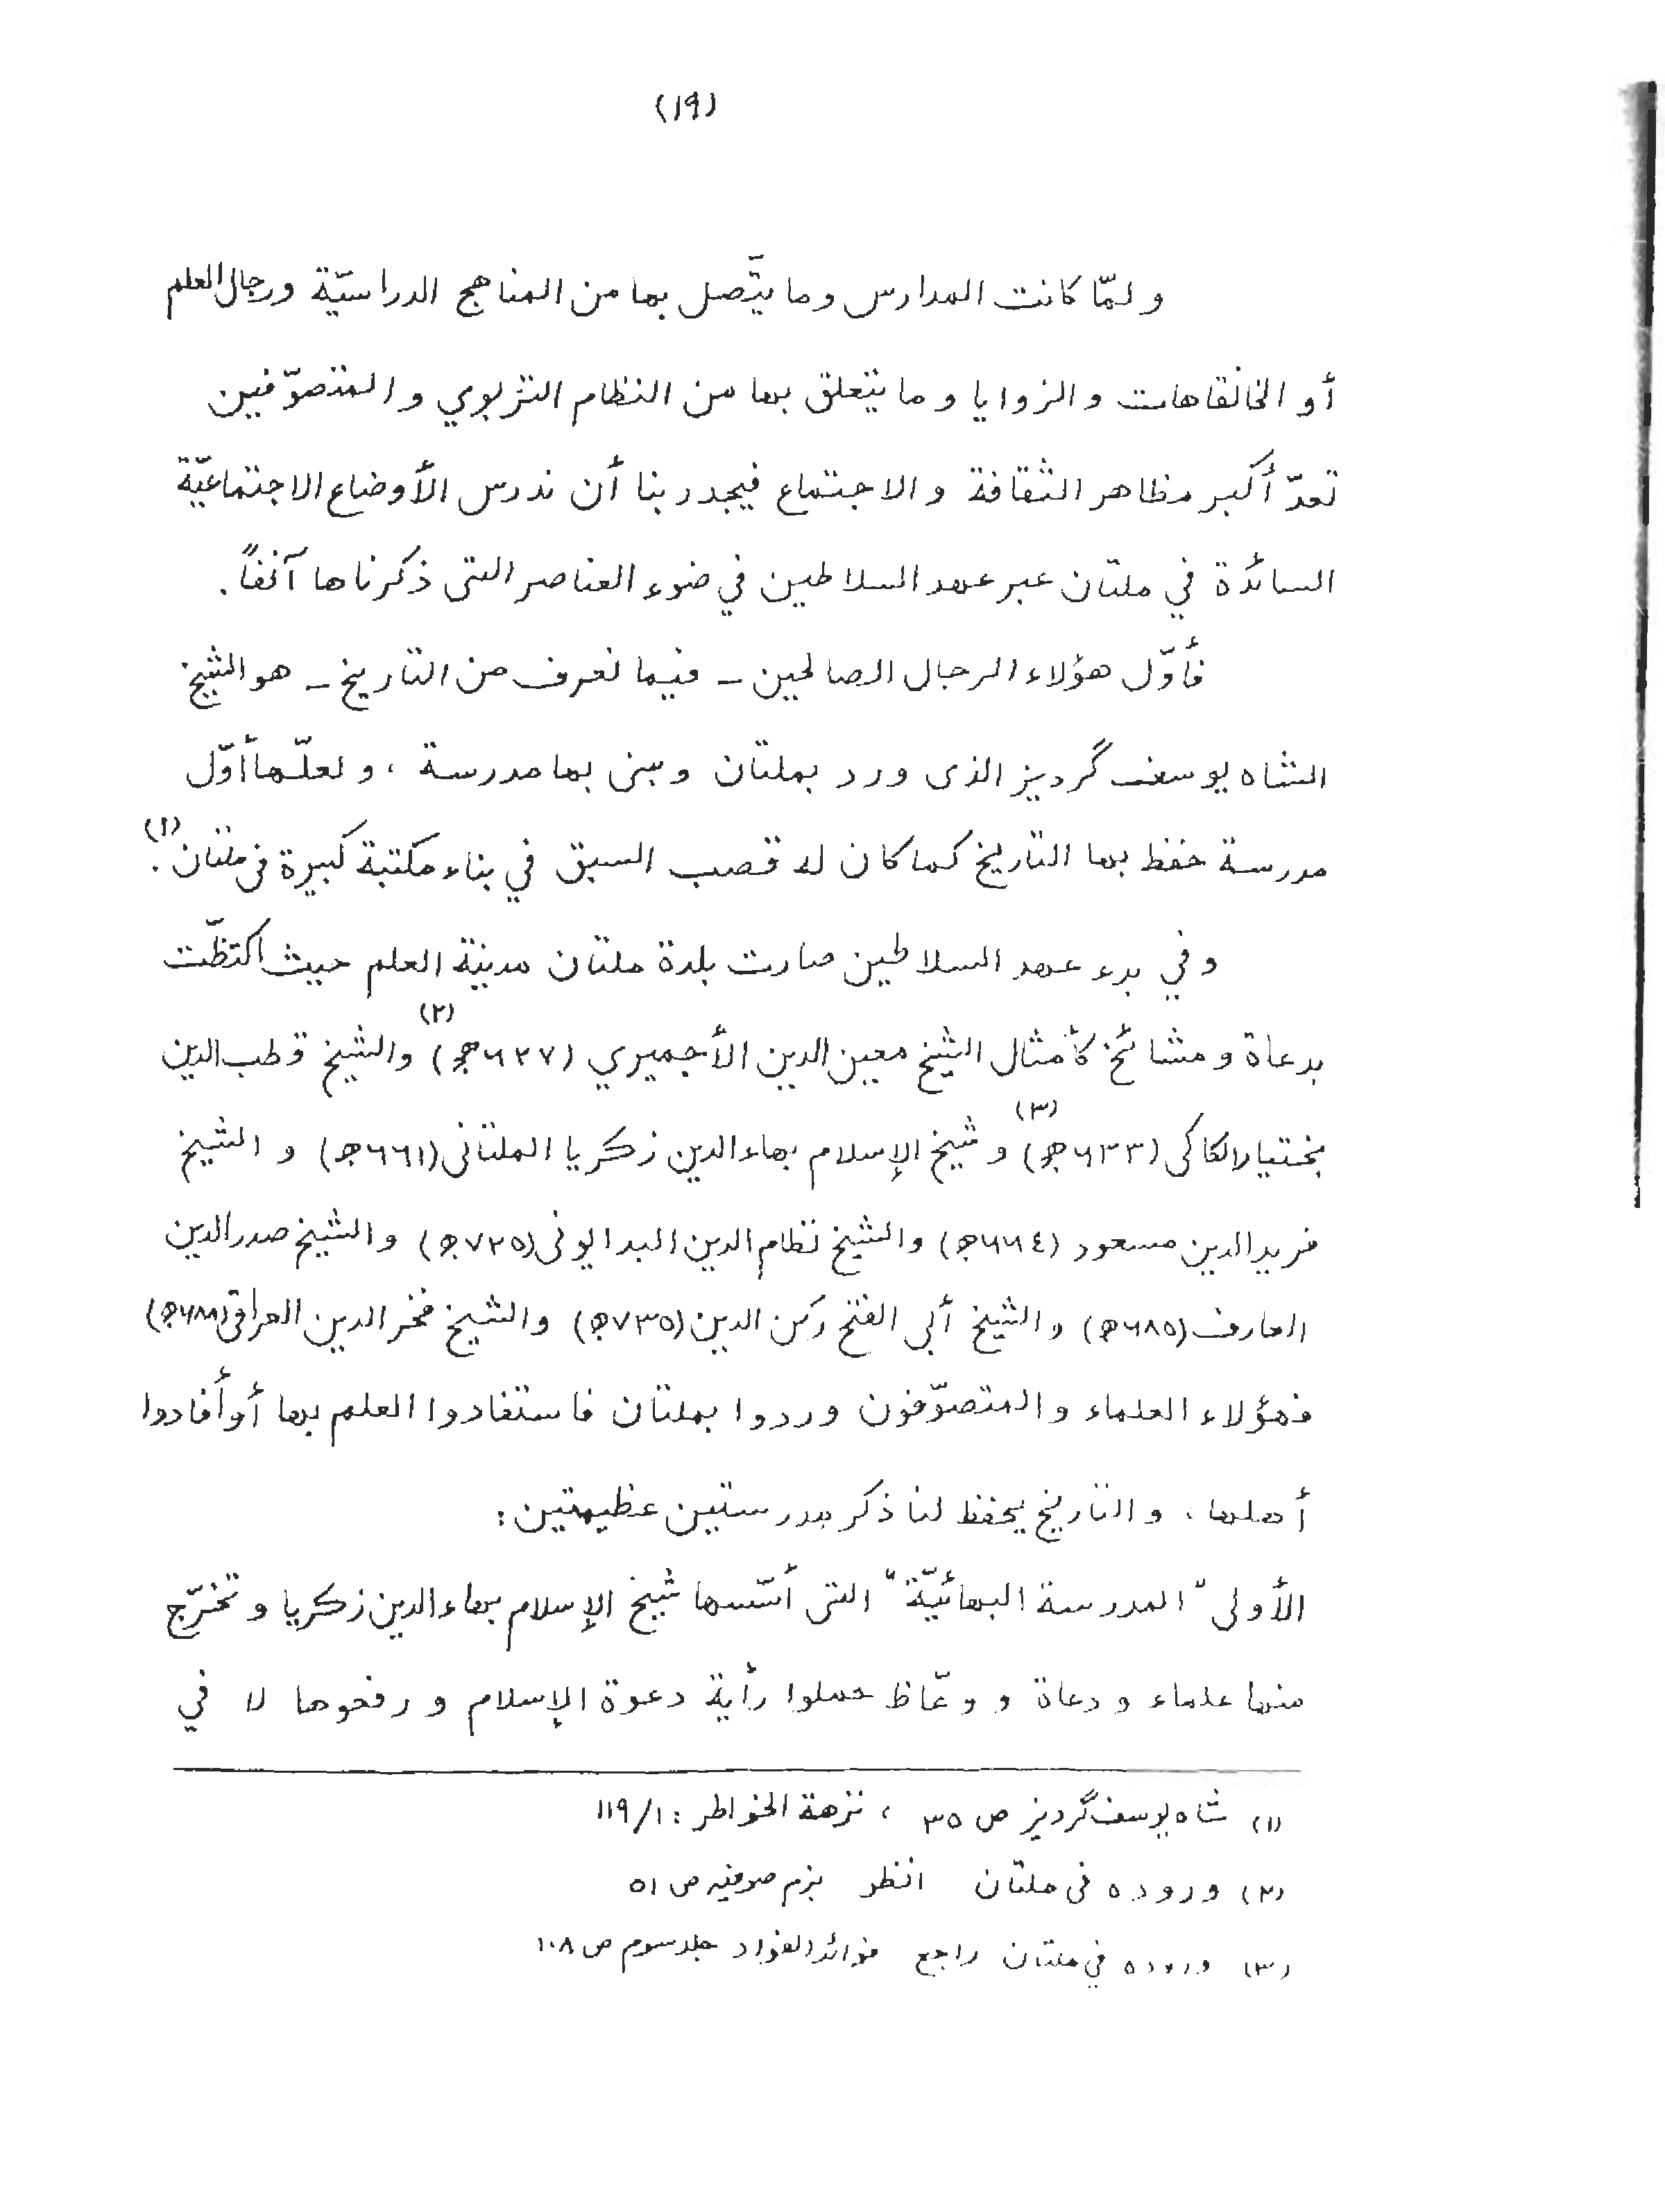 (١٩)
ولمّا كانت المدارس وما يتّصل بها من المناهج الدراسيّة ورجال العلم
أو الخانقاهات والزوايا وما يتعلق بها من النظام التربوي والمتصوّفين
تعدّ أكبر مظاهر الثقافة والاجتماع فيجدر بنا أن ندرس الأوضاع الاجتماعيّة
السائدة في ملتان عبر عهد السلاطين في ضوء العناصر التى ذكرناها آنفاً.
فأوّل هؤلاء الرجال الصالحين ـ فيما نعرف من التاريخ ـ هو الشيخ
الشاه يوسف گرديز الذى ورد بملتان وبنى بها مدرسة ، ولعلّها أوّل
مدرسة حفظ بها التاريخ كما كان له قصب السبق في بناء مكتبة كبيرة فى ملتان (١).
وفي بدء عهد السلاطين صارت بلدة ملتان مدينة العلم حيث اكتظّت
بدعاة ومشائخ كأمثال الشيخ معين الدين الأجميري (٦٢٧ھ) (٢) والشيخ قطب الدين
بختيار الكاكى (٦٣٣ھ) (٣) وشيخ الإسلام بهاء الدين زكريا الملتانى (٦٦١ھ) و الشيخ
فريد الدين مسعود (٦٦٤ھ) والشيخ نظام الدين البدايونى (٧٢٥ھ) والشيخ صدر الدين
العارف (٦٨٥ھ) والشيخ أبى الفتح ركن الدين (٧٣٥ھ) والشيخ فخر الدين العراقى (٦٨٨ھ)
فهؤلاء العلماء والمتصوّفون وردوا بملتان فاستفادوا العلم بها أو أفادوا
أهلها ، والتاريخ يحفظ لنا ذكر مدرستين عظيمتين :
الأولى "المدرسة البهائيّة" التى أسّسها شيخ الإسلام بهاء الدين زكريا وتخرّج
منها علماء ودعاة و وعّاظ حملوا رأية دعوة الإسلام ورفعوها لا في
(١) شاه يوسف گرديز ص ٣٥ ، نزهة الخواطر : ١/١١٩
(٢) وروده فى ملتان انظر بزم صوفيه ص ٥١
(٣) وروده في ملتان راجع فوائد الفواد جلد سوم ص ١٠٨